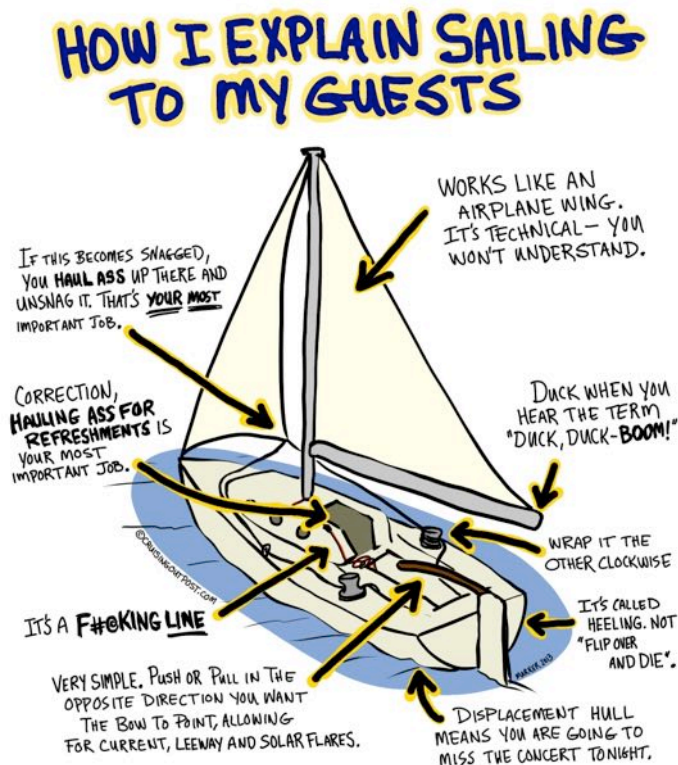 HOW I EXPLAIN SAILING
TO MY GUESTS
WORKS LIKE AN
AIRPLANE WING.
IT'S TECHNICAL – YOU
WON'T UNDERSTAND.
IF THIS BECOMES SNAGGED,
YOU HAUL ASS UP THERE AND
UNSNAG IT. THAT'S YOUR MOST
IMPORTANT JOB.
CORRECTION,
HAULING ASS FOR
REFRESHMENTS IS
YOUR MOST
IMPORTANT JOB.
DUCK WHEN YOU
HEAR THE TERM
"DUCK, DUCK-BOOM!"
WRAP IT THE
OTHER CLOCKWISE
©CRUISINGOUTPOST.COM
IT'S A F#@KING LINE
IT'S CALLED
HEELING. NOT
"FLIP OVER
AND DIE".
MARKER.2013
VERY SIMPLE. PUSH OR PULL IN THE
OPPOSITE DIRECTION YOU WANT
THE BOW TO POINT, ALLOWING
FOR CURRENT, LEEWAY AND SOLAR FLARES.
DISPLACEMENT HULL
MEANS YOU ARE GOING TO
MISS THE CONCERT TONIGHT.